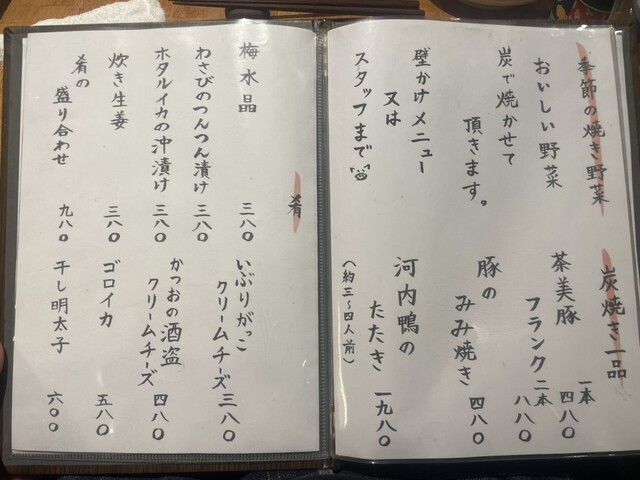 季節の焼き野菜
おいしい野菜
炭で焼かせて
頂きます。
壁かけメニュー
又は
スタッフまで
炭焼き一品
茶美豚
フランク
一本 四八〇
二本 八八〇
豚の
みみ焼き 四八〇
河内鴨の
たたき 一九八〇
(約三〜四人前)
肴
梅水晶 三八〇
わさびのつんつん漬け 三八〇
ホタルイカの沖漬け 三八〇
炊き生姜 三八〇
肴の
盛り合わせ 九八〇
いぶりがっこ
クリームチーズ 三八〇
かつおの酒盗
クリームチーズ 四八〇
ゴロイカ 五八〇
干し明太子 六〇〇